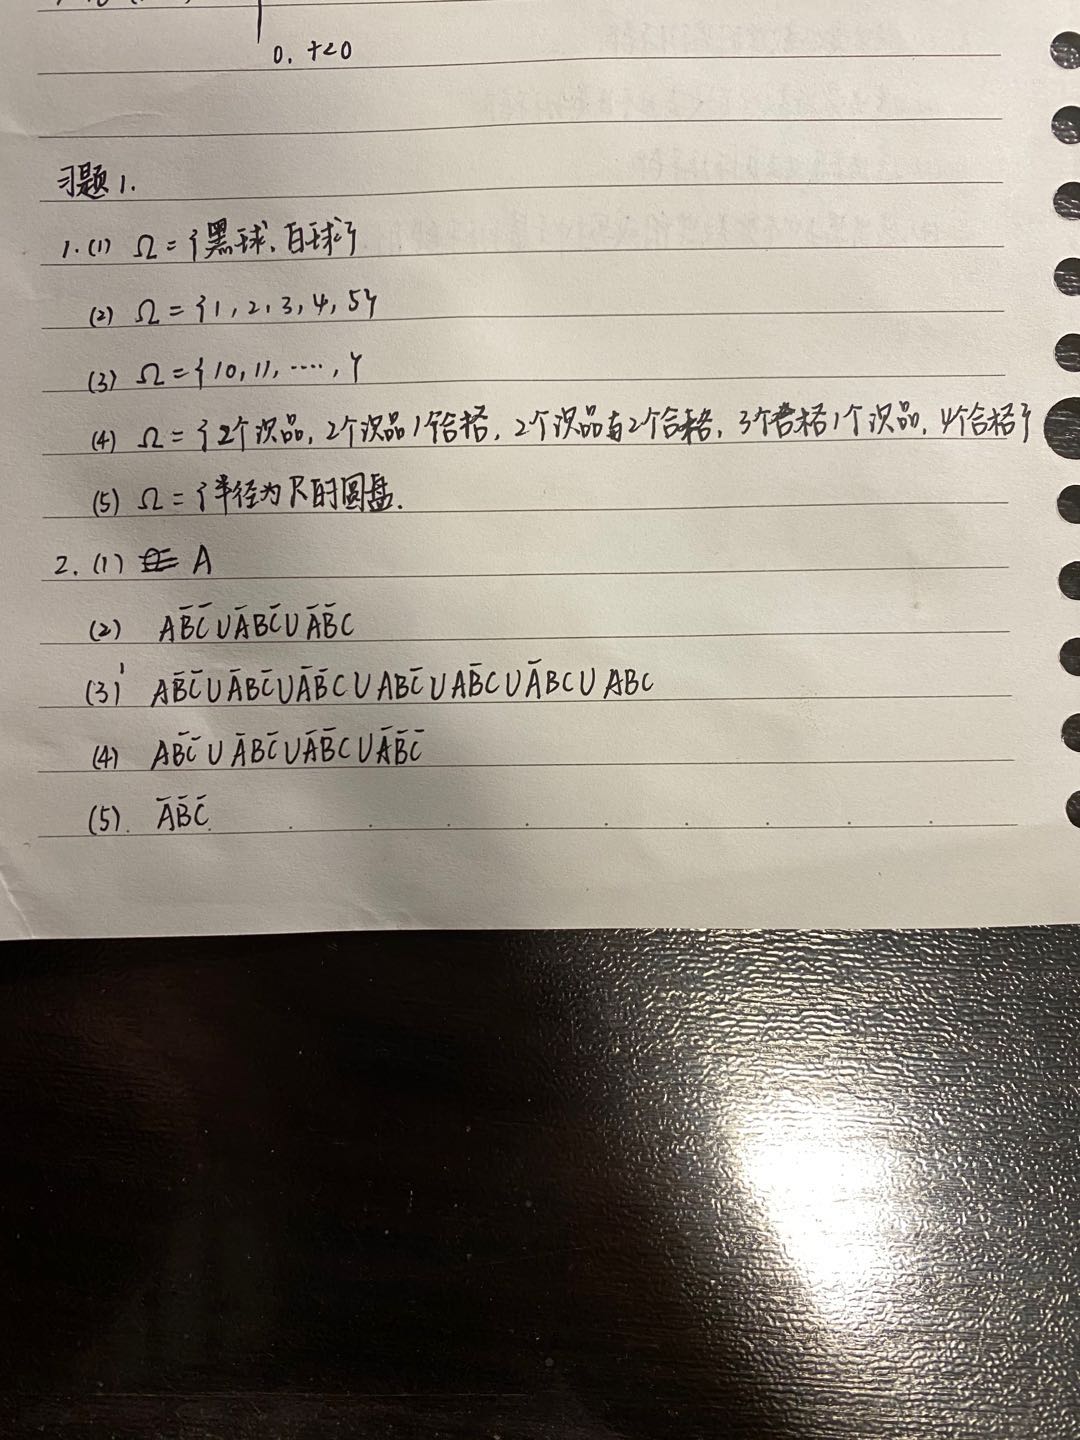 0, t<0
习题1.
1.(1) Ω={黑球, 白球}
(2) Ω={1,2,3,4,5}
(3) Ω={10,11,····,}
(4) Ω={2个次品, 2个次品1个合格, 2个次品2个合格, 3个合格1个次品, 4个合格}
(5) Ω={半径为R的圆盘.
2.(1) A
(2) AB̄C̄∪ĀBC̄∪ĀB̄C
(3) AB̄C̄∪ĀBC̄∪ĀB̄C∪ABC̄∪AB̄C∪ĀBC∪ABC
(4) AB̄C̄∪ĀBC̄∪ĀB̄C∪ĀB̄C̄
(5). ĀB̄C̄